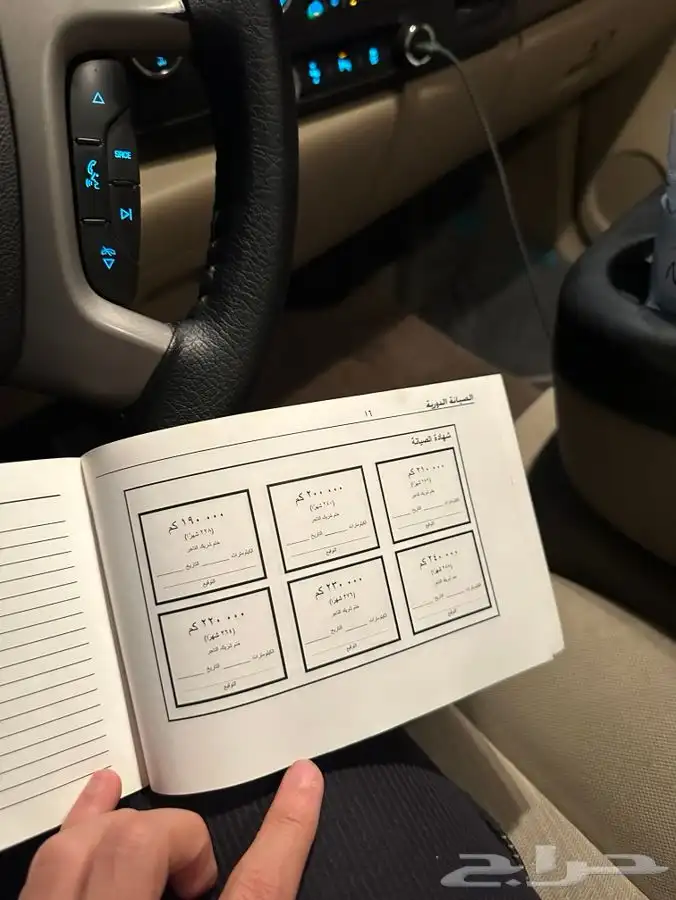 SRCE
الصيانة الدورية
١٦
شهادة الصيانة
٢١٠ ٠٠٠ كم
ختم شريك التاجر
الكيلومترات التاريخ
التوقيع
٢٠٠ ٠٠٠ كم
(٢٤٠ شهرًا)
ختم شريك التاجر
الكيلومترات التاريخ
التوقيع
١٩٠ ٠٠٠ كم
(٢٢٨ شهرًا)
ختم شريك التاجر
الكيلومترات التاريخ
التوقيع
٢٤٠ ٠٠٠ كم
ختم شريك التاجر
الكيلومترات التاريخ
التوقيع
٢٣٠ ٠٠٠ كم
(٢٧٦ شهرًا)
ختم شريك التاجر
الكيلومترات التاريخ
التوقيع
٢٢٠ ٠٠٠ كم
(٢٦٥ شهرًا)
ختم شريك التاجر
الكيلومترات التاريخ
التوقيع
حراج